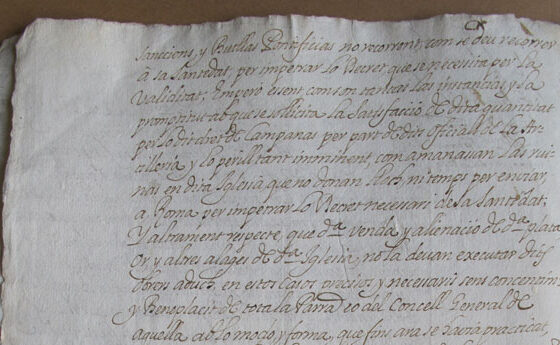 sanccions, y Bullas Pontificias no recorrent, com se deu recorrer
à sa Santedat, per impetrar lo Decret que se necessita per la
validitat; Empero essent com son tantas las instancias, y la
promptitut ab que se sollicita la satisfacció de dita quantitat
per lo dit dret de Campanas per part de dit Officiall de la Ar-
tilleria, y lo perill tant imminent, com amanassan las rui-
nas en dita Iglesia, que no donan lloch, ni temps per enviar
a Roma per impetrar lo Decret necessari de sa Santedat;
Y altrament respecte, que dª venda, y alienació de dª plata
or, y altres alajes de dª Iglesia, no la deuan executar dits
obrers aduch, en estos casos precisos, y necessaris sens concentiment
y Beneplacit de tota la Parrª eo del Concell General de
aquella ab lo modo, y forma, que fins ara se havia practicat,